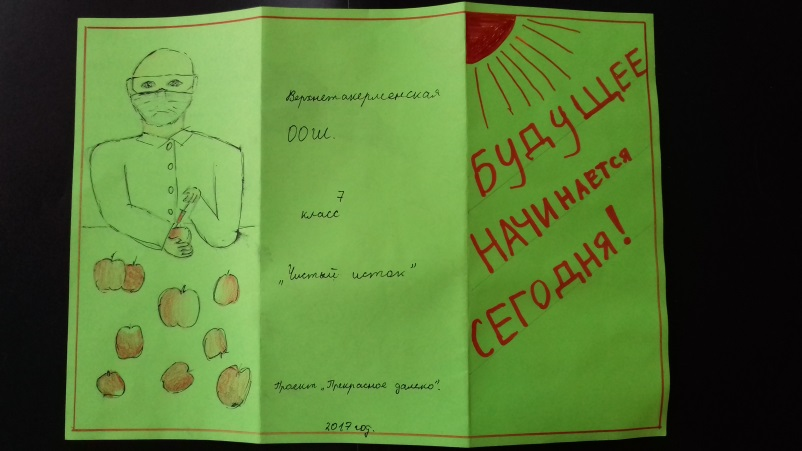 Верхнетакерменская
ООШ.
7
класс
„Чистый исток"
Проект „Прекрасное далеко".
2017 год.
БУДУЩЕЕ
НАЧИНАЕТСЯ
СЕГОДНЯ!